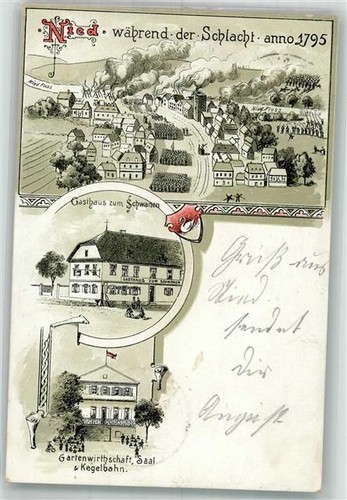 Nied · während · der · Schlacht · anno 1795
Nied Fluss
Nied Fluss
Gasthaus zum Schwanen
GASTHAUS ZUM SCHWANEN
Gruß aus
Nied.
sendet
Dir
August
Gartenwirthschaft, Saal
& Kegelbahn.